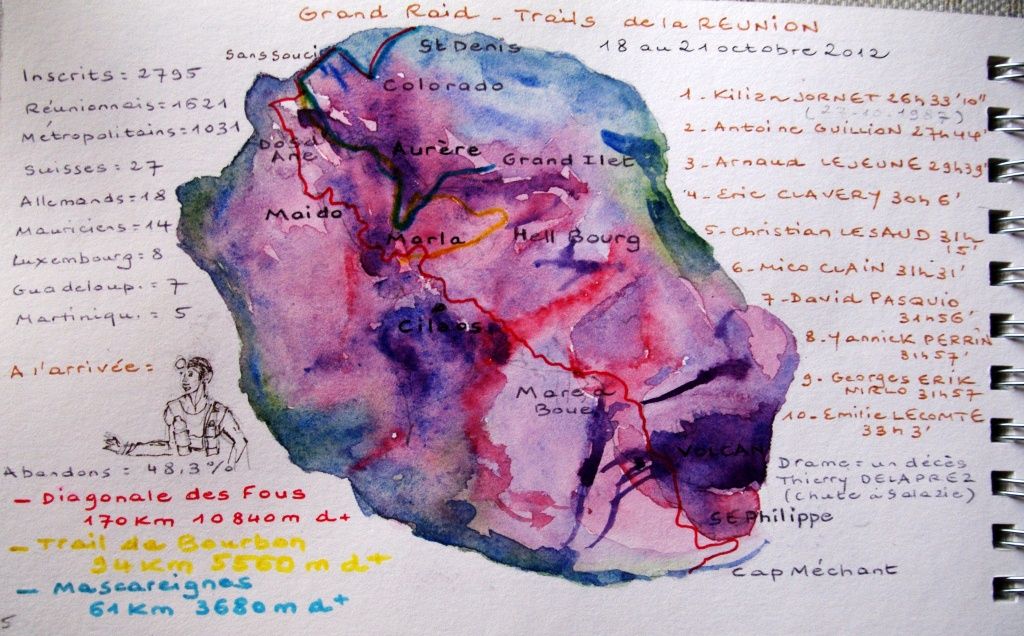 Grand Raid - Trails de la REUNION
18 au 21 octobre 2012
Inscrits = 2795
Réunionnais = 1621
Métropolitains = 1031
Suisses = 27
Allemands = 18
Mauriciens = 14
Luxembourg = 8
Guadeloup. = 7
Martiniqu. = 5
A l'arrivée =
Abandons = 48,3%
- Diagonale des Fous
170 Km 10 840 m d+
- Trail de Bourbon
94 Km 5560 m d+
- Mascareignes
61 Km 3680 m d+
5
Sans Souci
St Denis
Colorado
Dos d
Ane
Aurère
Grand Ilet
Maido
Marla
Hell Bourg
Cilaos
Mare à
Boue
VOLCAN
St Philippe
Cap Méchant
1 - Kilian JORNET 26h33'10"
(27.10.1987)
2 - Antoine GUILLION 27h44'
3 - Arnaud LEJEUNE 29h39'
4 - Eric CLAVERY 30h6'
5 - Christian LESAUD 31h
15'
6 - Mico CLAIN 31h31'
7 - David PASQUIO
31h56'
8 - Yannick PERRIN
31h57'
9 - Georges ERIK
NIRLO 31h57
10 - Emilie LECOMTE
33h3'
Drame = un décès
Thierry DELAPREZ
(Chute à Salazie)